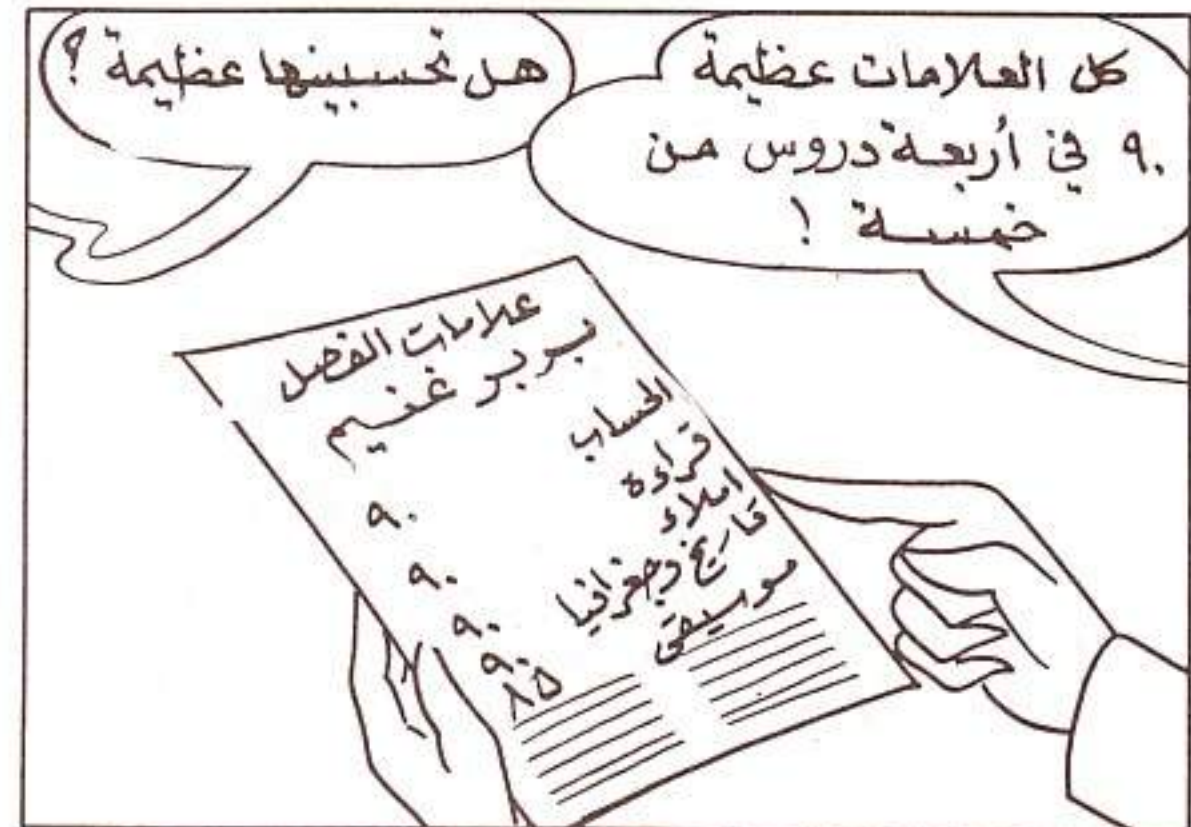 كل العلامات عظيمة
٩٠ في أربعة دروس من
خمسة !
هل تحسبينها عظيمة ؟
علامات الفصل
بربر غنيم
الحساب ٩٠
قراءة ٩٠
املاء ٩٠
تاريخ وجغرافيا ٩٠
موسيقى ٨٥